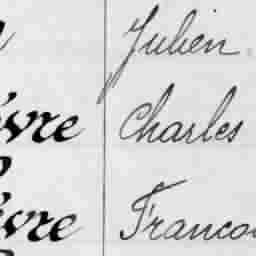 Julien
èvre Charles
èvre Franco